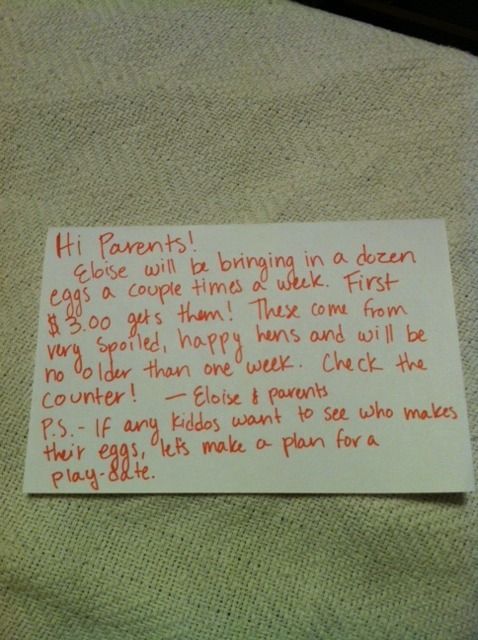 Hi Parents!
Eloise will be bringing in a dozen
eggs a couple times a week. First
$3.00 gets them! These come from
very spoiled, happy hens and will be
no older than one week. Check the
counter! — Eloise & parents
P.S. - If any kiddos want to see who makes
their eggs, let's make a plan for a
play-date.